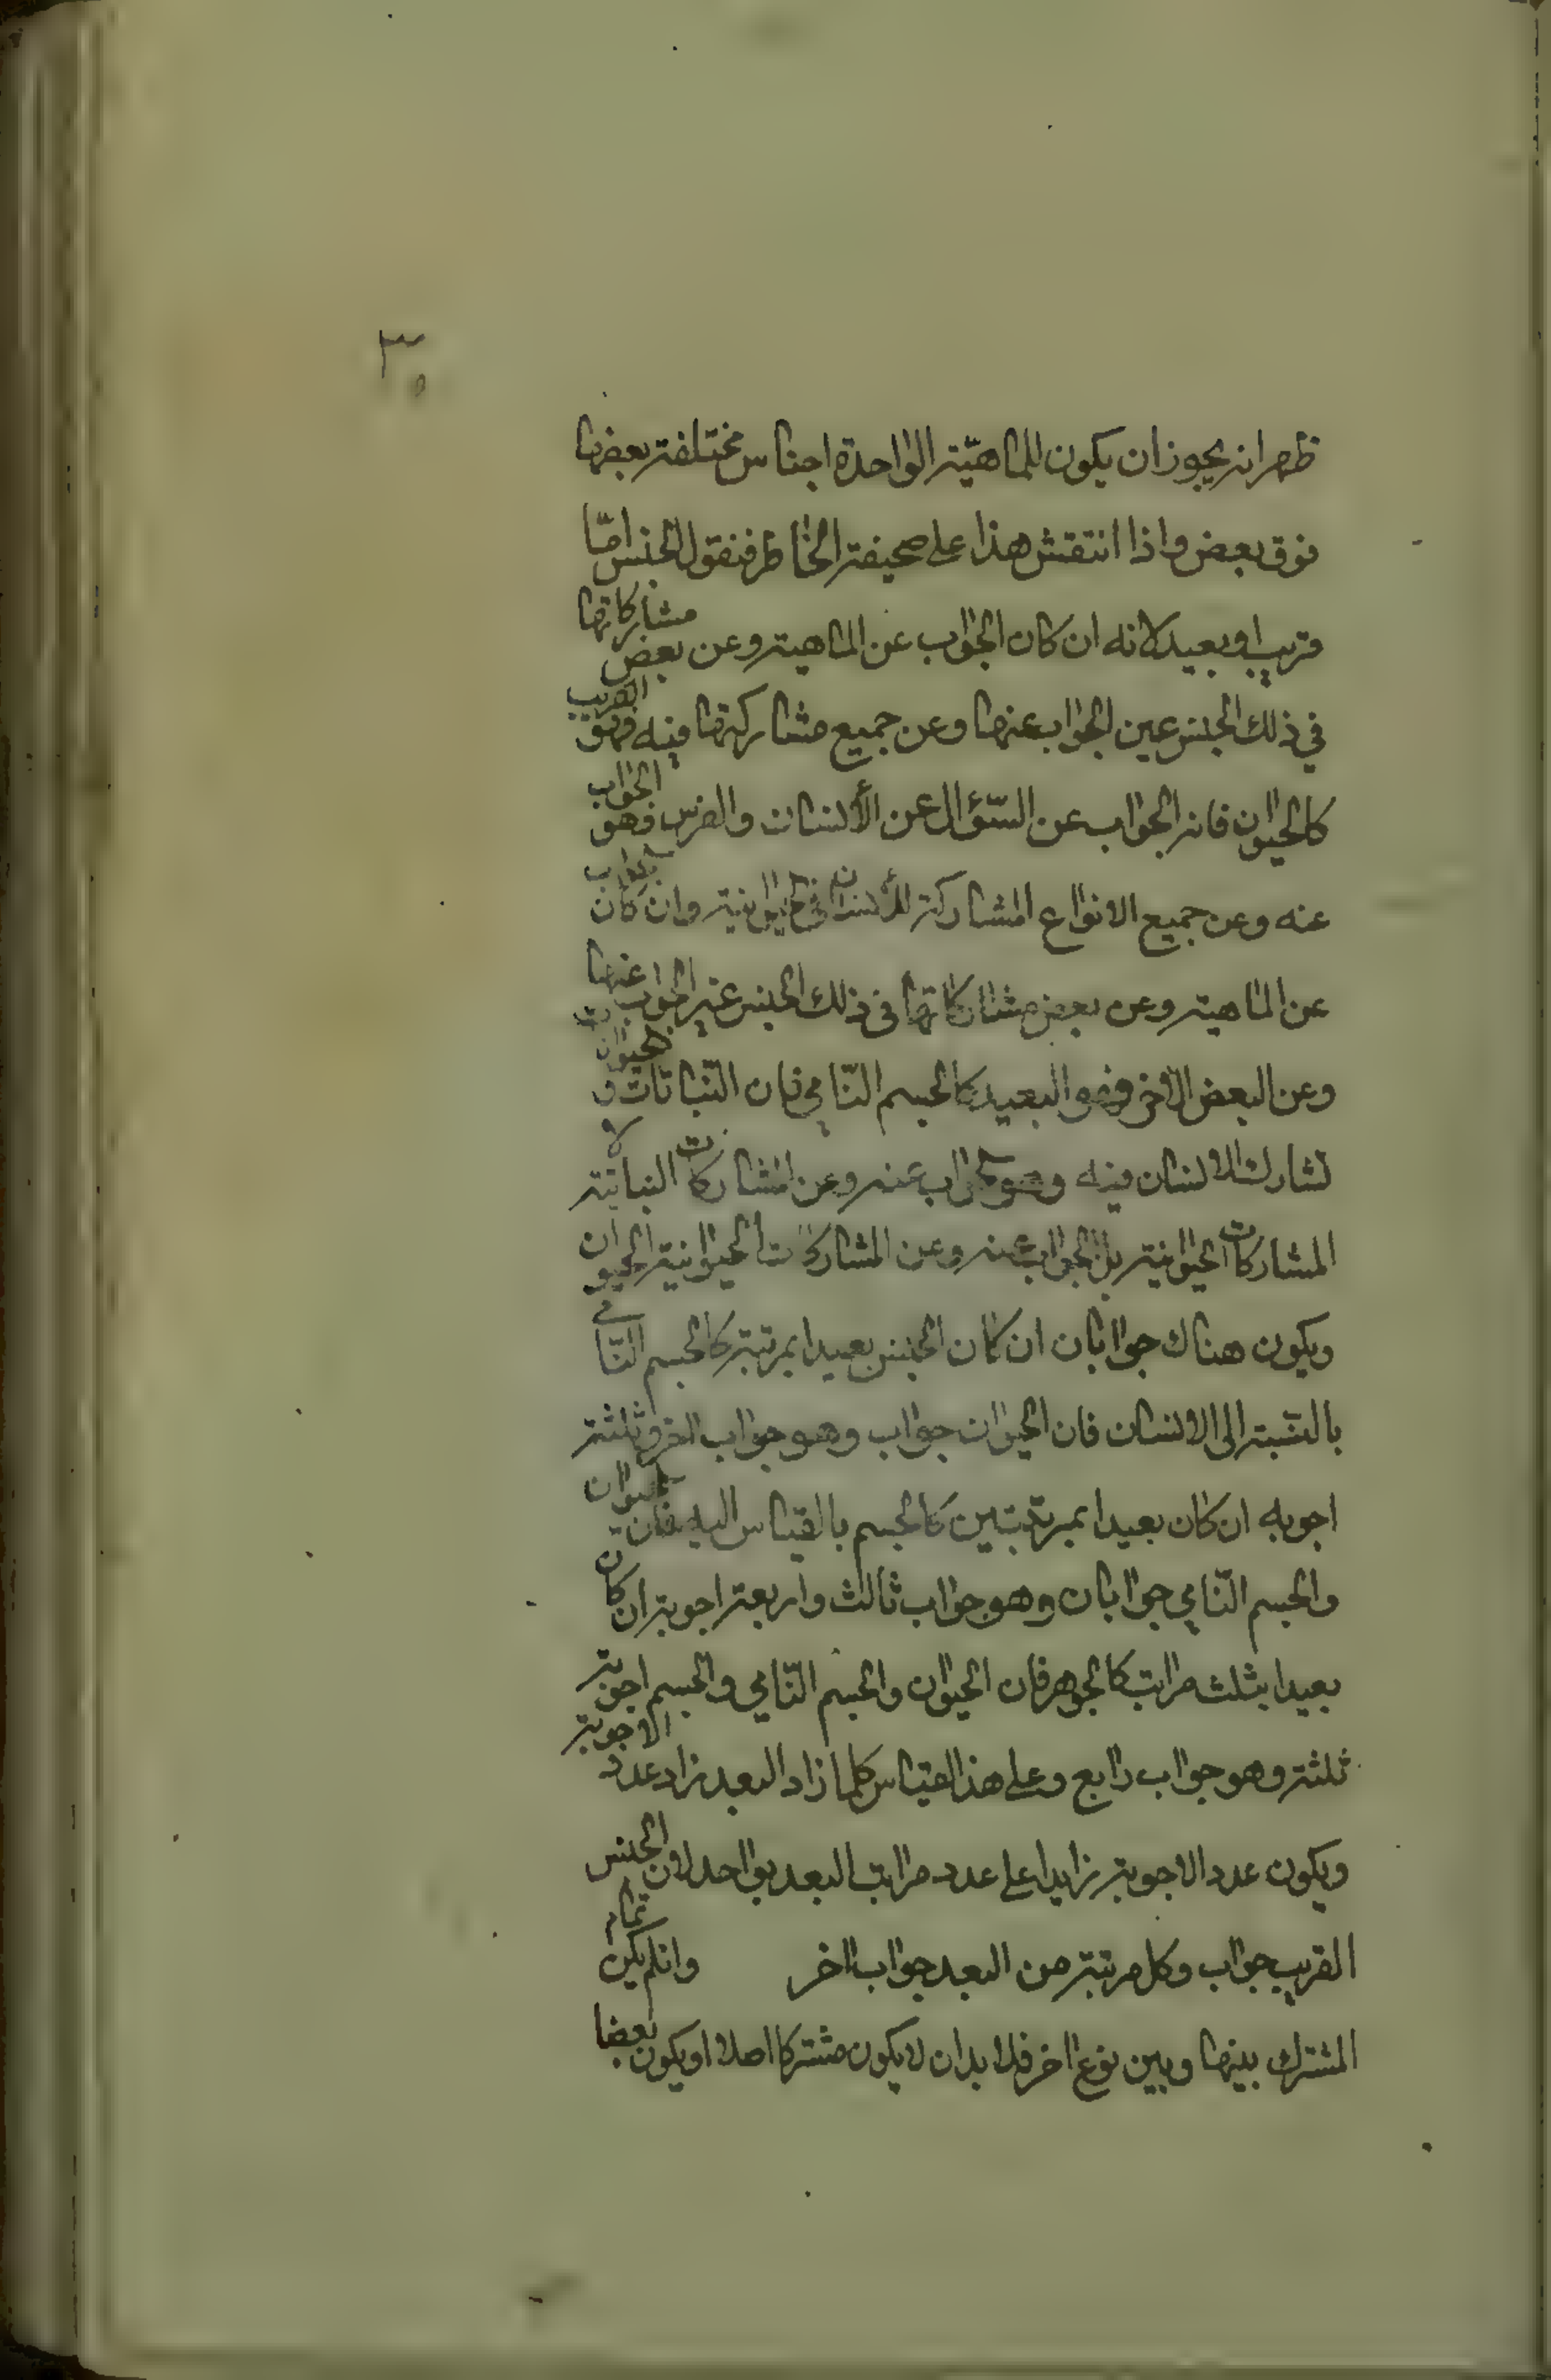 ٣٥
ظهر انه يجوز ان يكون للماهيّة الواحدة اجناس مختلفة بعضها
فوق بعض واذا انتقش هذا على صحيفة الخاطر فنقول الجنس امّا
قريب او بعيد لانه ان كان الجواب عن الماهية وعن بعض مشاركاتها
في ذلك الجنس عين الجواب عنها وعن جميع مشاركتها فيه فهو القريب
كالحيوان فانه الجواب عن السّؤال عن الأنسان والفرس وهو الجواب
عنه وعن جميع الانواع المشاركة للأنسان في الحيوانية وان كان الجواب
عن الماهية وعن بعض مشاركاتها في ذلك الجنس غير الجواب عنها
وعن البعض الاخر فهو البعيد كالجسم النّامي فان النّباتات و الحيوانات
تشارك الانسان فيه وهو الجواب عنه وعن المشاركات النباتية لا
المشاركات الحيوانية بل الجواب عنه وعن المشاركات الحيوانية الحيوان
ويكون هناك جوابان ان كان الجنس بعيدا بمرتبة كالجسم النّامي
بالنّسبة الى الانسان فان الحيوان جواب وهو جواب اخر وثلثة
اجوبه ان كان بعيدا بمرتبتين كالجسم بالقياس اليه فان الحيوان
والجسم النّامي جوابان وهو جواب ثالث واربعة اجوبة ان كان
بعيدا بثلث مراتب كالجوهر فان الحيوان والجسم النّامي والجسم اجوبة
ثلثة وهو جواب رابع وعلى هذا القياس كلما زاد البعد زاد عدد الاجوبة
ويكون عدد الاجوبة زايدا على عدد مراتب البعد بواحد لان الجنس
القريب جواب وكل مرتبة من البعد جواب اخر وانلم يكن تمام
المشترك بينها وبين نوع اخر فلا بد ان لا يكون مشتركا اصلا او يكون بعضا